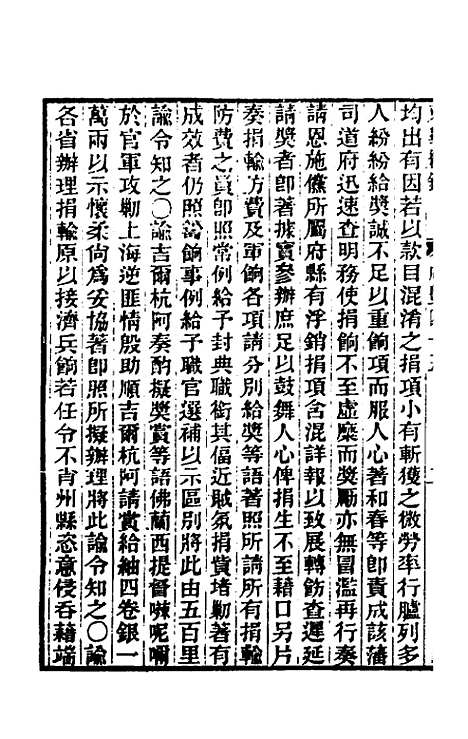 均出有因若以款目混淆之捐項小有斬獲之微勞率行臚列多
人紛紛給獎誠不足以重餉項而服人心著和春等即責成該藩
司道府迅速查明務使捐餉不至虛糜而獎勵亦無冒濫再行奏
請恩施儻所屬府縣有浮銷捐項含混詳報以致展轉飭查遲延
請獎者卽著據實參辦庶足以鼓舞人心俾捐生不至藉口另片
奏捐輸方費及軍餉各項請分別給獎等語著照所請所有捐輸
防費之員卽照常例給予封典職銜其偪近賊氛捐貲堵勦著有
成效者仍照籌餉事例給予職官選補以示區別將此由五百里
諭令知之○諭吉爾杭阿奏酌擬獎賞等語佛蘭西提督㖦呢嘣
於官軍攻勦上海逆匪情殷助順吉爾杭阿請賞給紬四卷銀一
萬兩以示懷柔尙爲妥協著卽照所擬辦理將此諭令知之○諭
各省辦理捐輸原以接濟兵餉若任令不肖州縣恣意侵吞藉端